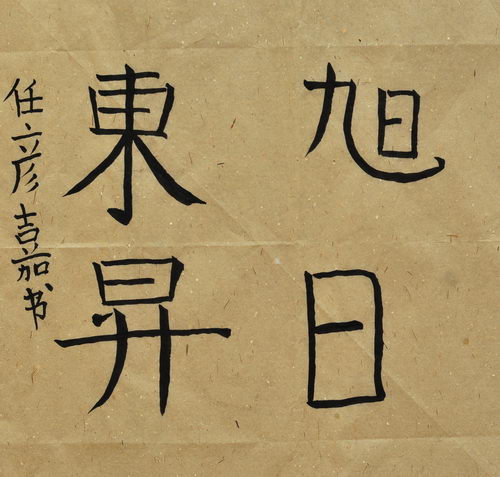 旭日
東昇
任彦嘉书